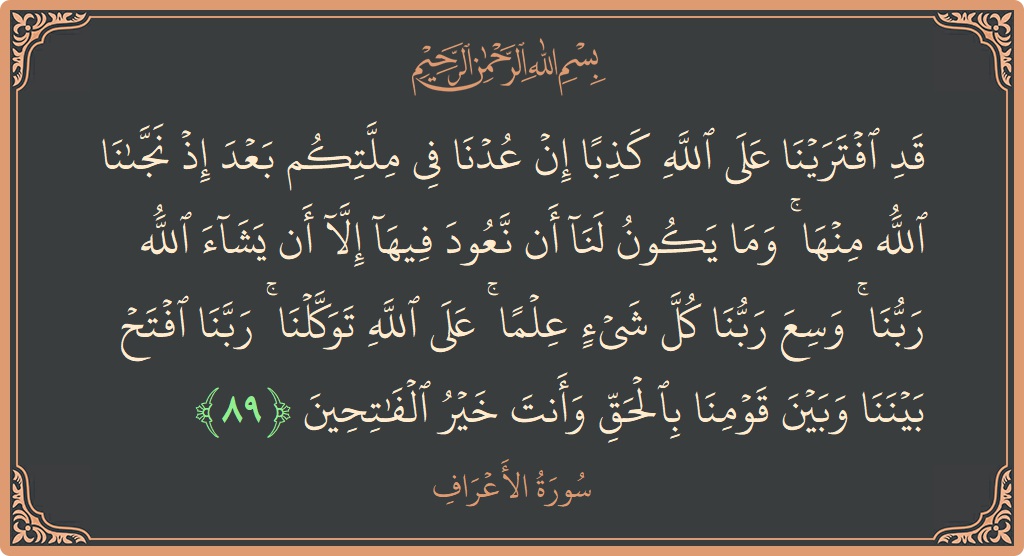 بِسْمِ اللَّهِ الرَّحْمَٰنِ الرَّحِيمِ
قَدِ ٱفْتَرَيْنَا عَلَى ٱللَّهِ كَذِبًا إِنْ عُدْنَا فِى مِلَّتِكُم بَعْدَ إِذْ نَجَّىٰنَا
ٱللَّهُ مِنْهَا ۚ وَمَا يَكُونُ لَنَآ أَن نَّعُودَ فِيهَآ إِلَّآ أَن يَشَآءَ ٱللَّهُ
رَبُّنَا ۚ وَسِعَ رَبُّنَا كُلَّ شَىْءٍ عِلْمًا ۚ عَلَى ٱللَّهِ تَوَكَّلْنَا ۚ رَبَّنَا ٱفْتَحْ
بَيْنَنَا وَبَيْنَ قَوْمِنَا بِٱلْحَقِّ وَأَنتَ خَيْرُ ٱلْفَٰتِحِينَ ﴿٨٩﴾
سُورَةُ الأَعْرَافِ